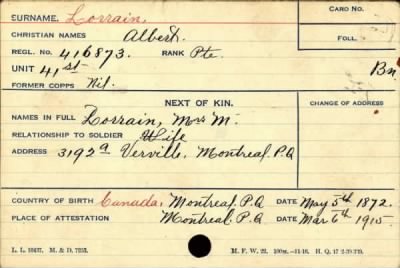 SURNAME. Lorrain, CARD NO.
CHRISTIAN NAMES Albert. FOLL.
REGL. NO. 416873. RANK Pte
UNIT 41st Bn.
FORMER CORPS Nil.
NEXT OF KIN. CHANGE OF ADDRESS
NAMES IN FULL Lorrain, Mrs M.
RELATIONSHIP TO SOLDIER Wife
ADDRESS 3192a Verville, Montreal P.Q
COUNTRY OF BIRTH Canada, Montreal P.Q DATE May 5th 1872.
PLACE OF ATTESTATION Montreal P.Q DATE Mar 6th 1915
M. F. W. 22.